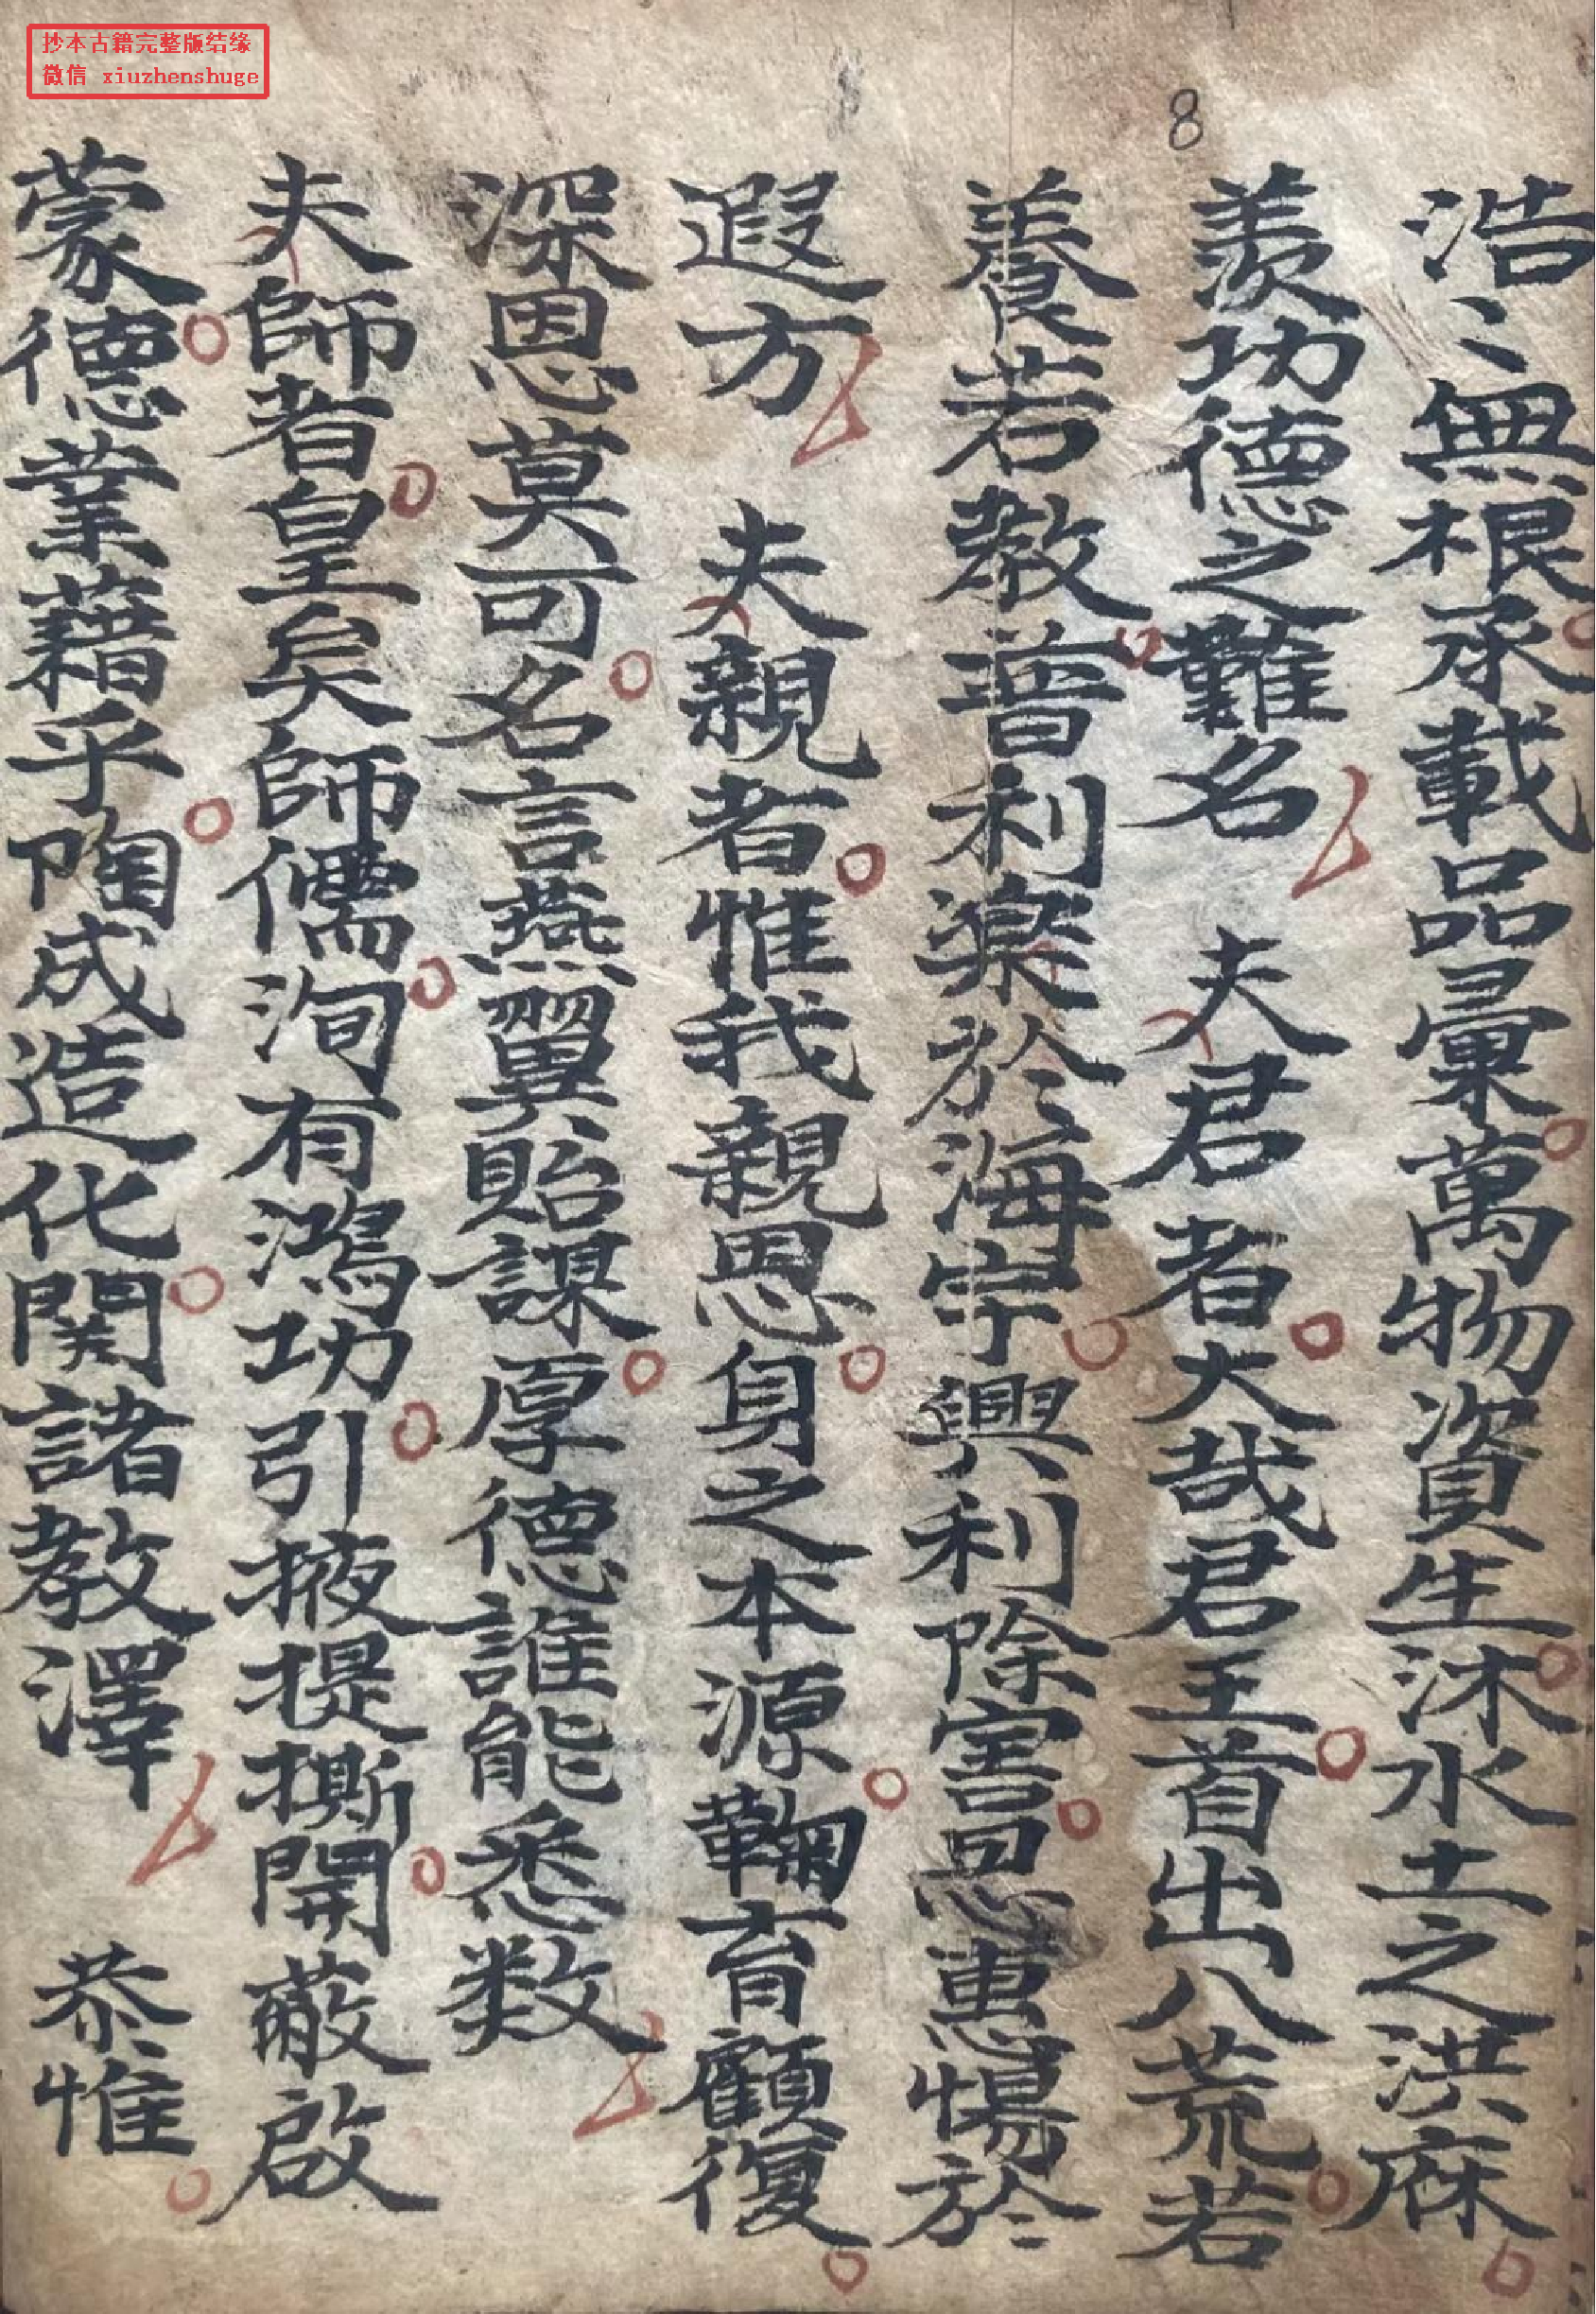 抄本古籍完整版结缘
微信 xiuzhenshuge
8
浩〻無根承載品彙萬物資生沐水土之洪庥
羨功德之難名 夫君者大哉君王首出八荒若
養若教普利樂於海宇興利除害恩惠惕於
遐方 夫親者惟我親恩身之本源鞠育顧復
深恩莫可名言燕翼貽謀厚德誰能悉数
夫師者皇矣師儒洵有鴻功引掖提撕開蔽啟
蒙德業藉乎陶成造化関諸教澤 恭惟